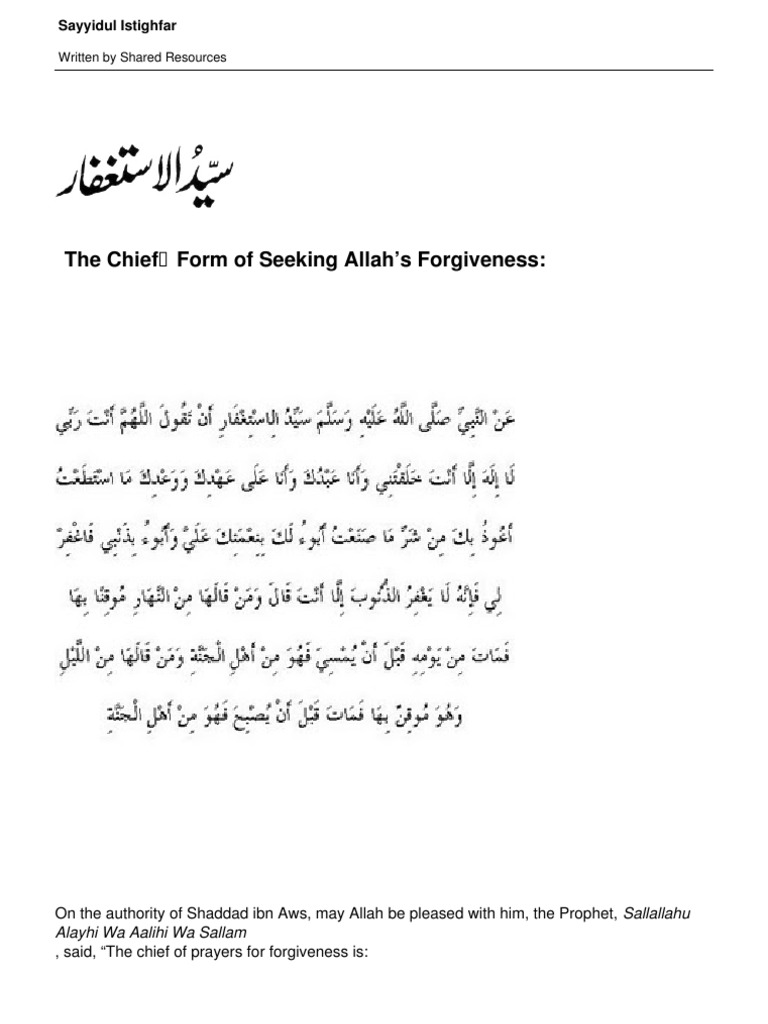 Sayyidul Istighfar
Written by Shared Resources
سيّدُ الاستغفار
The Chief Form of Seeking Allah’s Forgiveness:
عَنْ النَّبِيِّ صَلَّى اللَّهُ عَلَيْهِ وَسَلَّمَ سَيِّدُ الِاسْتِغْفَارِ أَنْ تَقُولَ اللَّهُمَّ أَنْتَ رَبِّي
لَا إِلَهَ إِلَّا أَنْتَ خَلَقْتَنِي وَأَنَا عَبْدُكَ وَأَنَا عَلَى عَهْدِكَ وَوَعْدِكَ مَا اسْتَطَعْتُ
أَعُوذُ بِكَ مِنْ شَرِّ مَا صَنَعْتُ أَبُوءُ لَكَ بِنِعْمَتِكَ عَلَيَّ وَأَبُوءُ بِذَنْبِي فَاغْفِرْ
لِي فَإِنَّهُ لَا يَغْفِرُ الذُّنُوبَ إِلَّا أَنْتَ قَالَ وَمَنْ قَالَهَا مِنْ النَّهَارِ مُوقِنًا بِهَا
فَمَاتَ مِنْ يَوْمِهِ قَبْلَ أَنْ يُمْسِيَ فَهُوَ مِنْ أَهْلِ الْجَنَّةِ وَمَنْ قَالَهَا مِنْ اللَّيْلِ
وَهُوَ مُوقِنٌ بِهَا فَمَاتَ قَبْلَ أَنْ يُصْبِحَ فَهُوَ مِنْ أَهْلِ الْجَنَّةِ
On the authority of Shaddad ibn Aws, may Allah be pleased with him, the Prophet, Sallallahu
Alayhi Wa Aalihi Wa Sallam
, said, “The chief of prayers for forgiveness is: